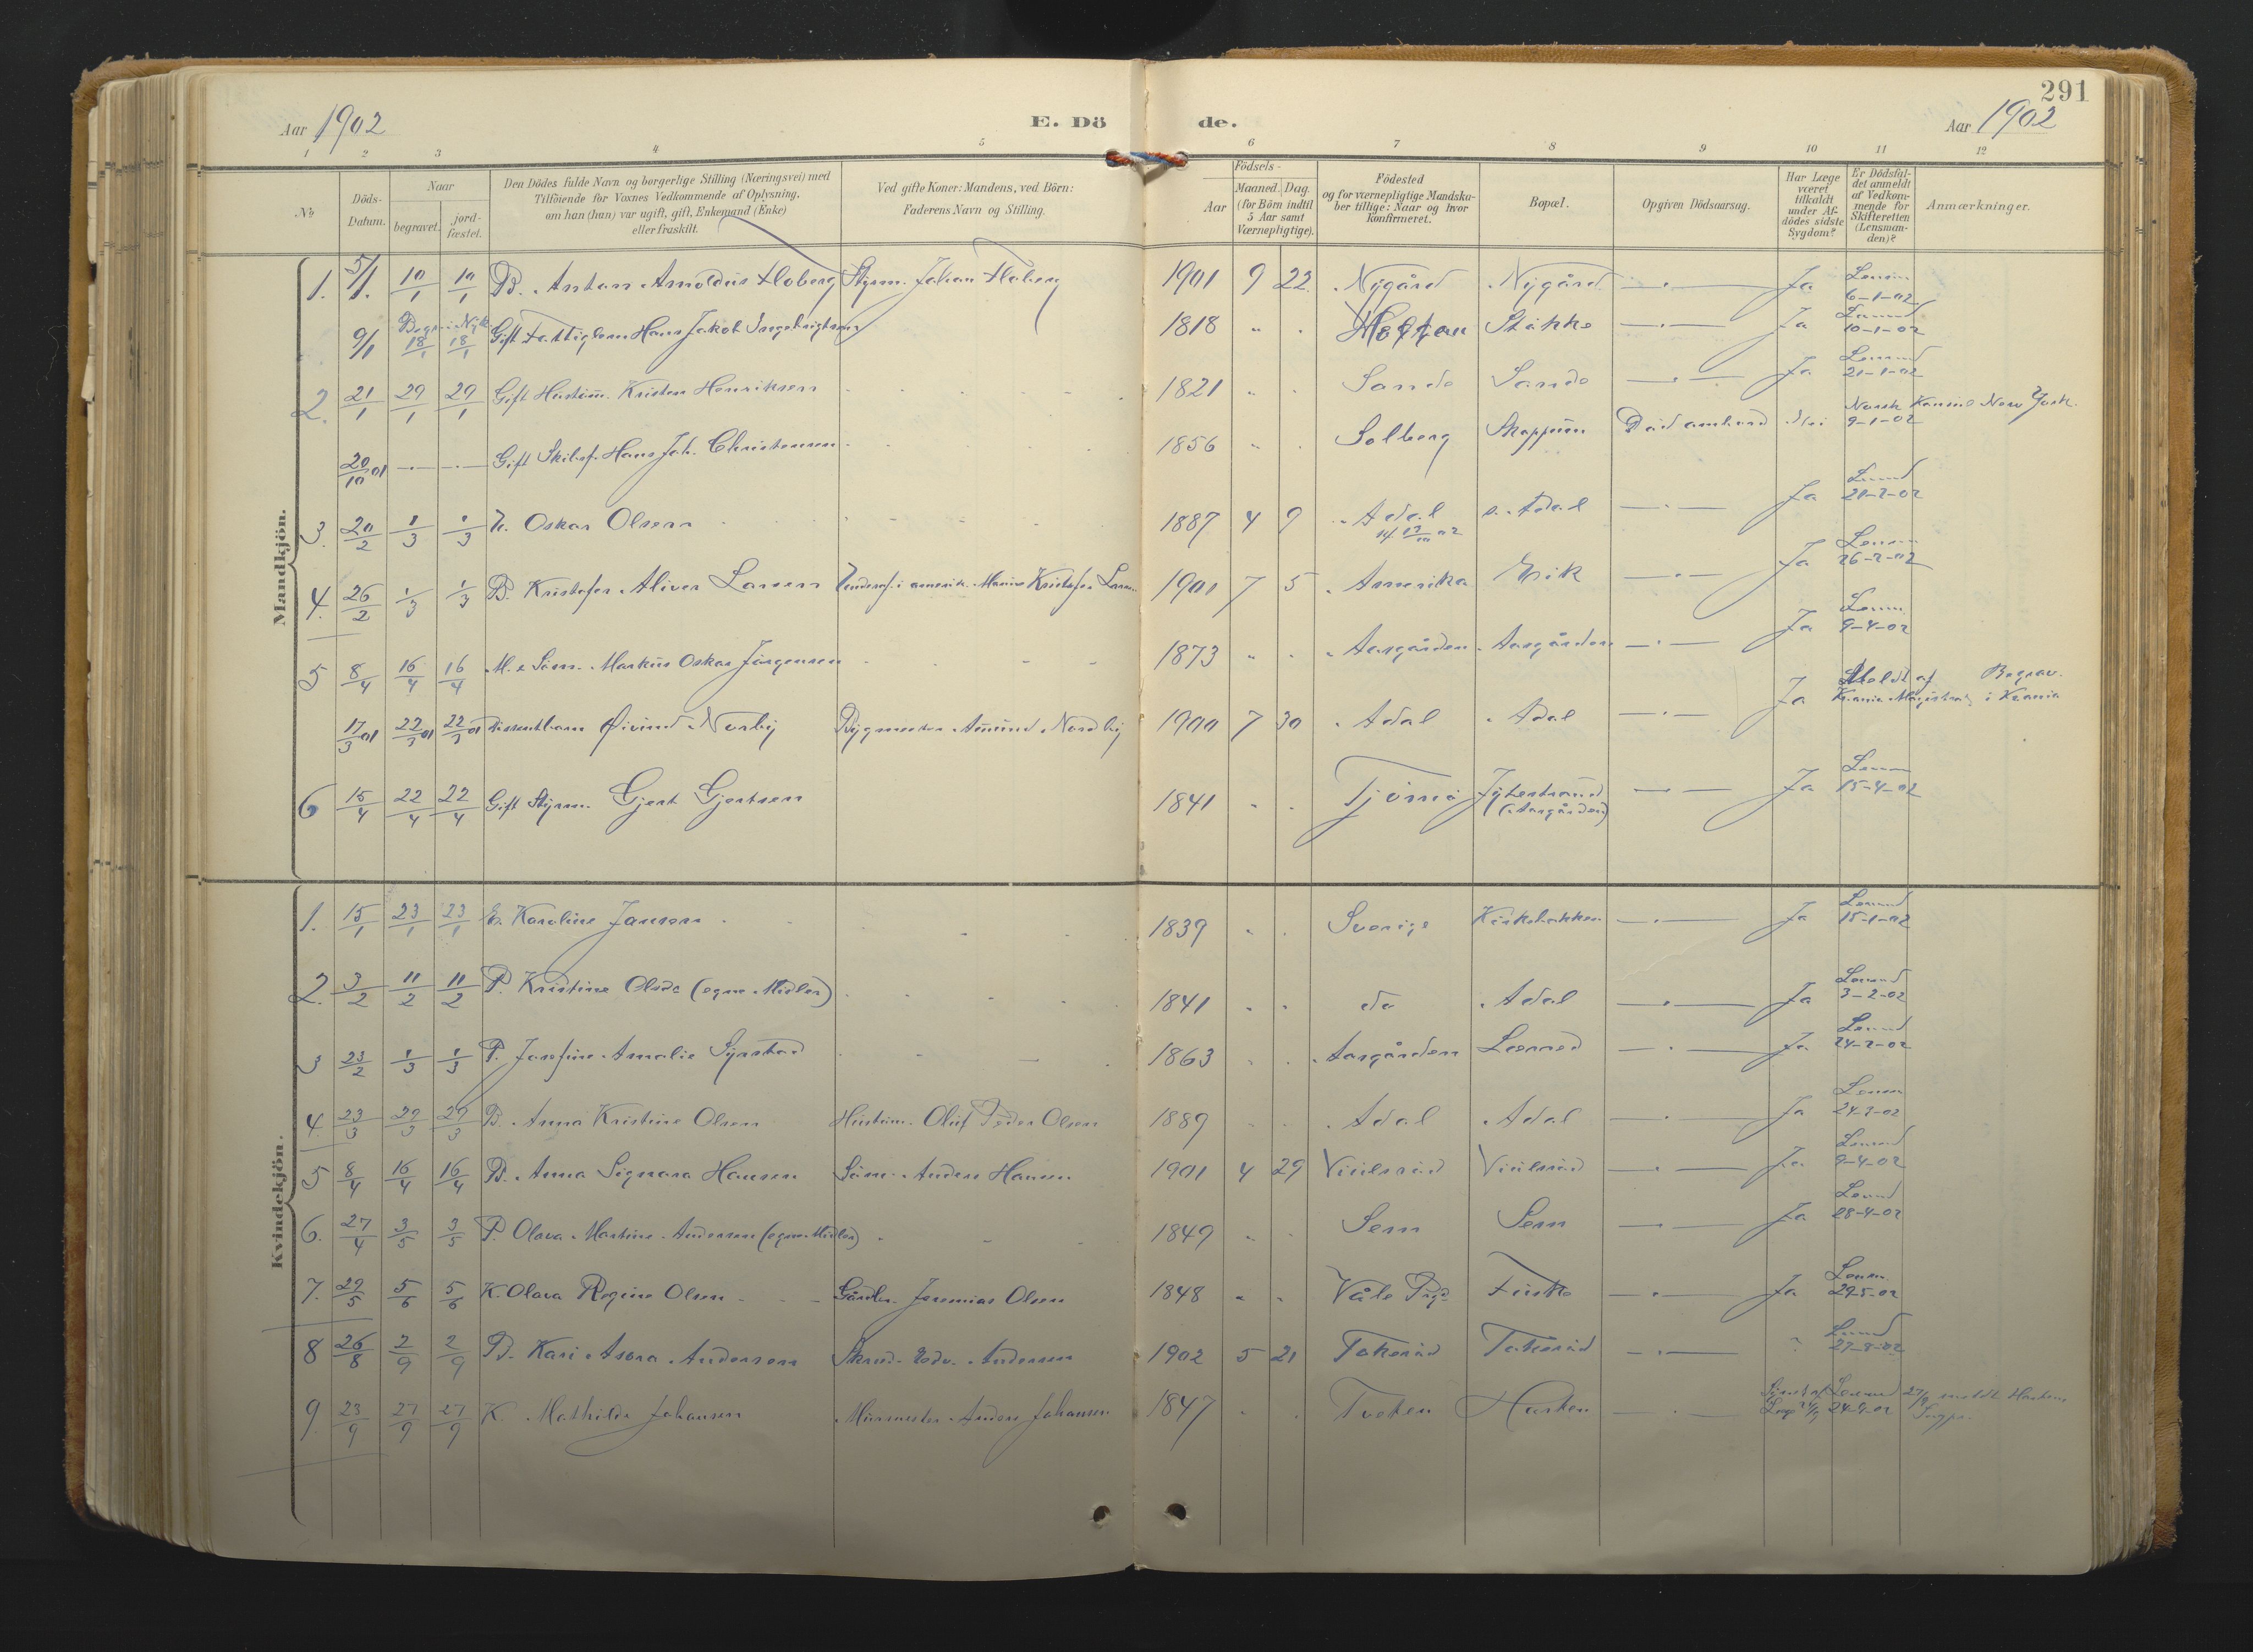 291
Aar 1902
E. Dö de.
Aar 1902
1 2 3 4 5 6 7 8 9 10 11 12
No
Döds-Datum.
Naar
begravet.
jord-fæstet.
Den Dödes fulde Navn og borgerlige Stilling (Næringsvei) med
Tilföiende for Voxnes Vedkommende af Oplysning,
om han (hun) var ugift, gift, Enkemand (Enke)
eller fraskilt.
Ved gifte Koner: Mandens, ved Börn:
Faderens Navn og Stilling.
Födsels-
Aar
Maaned. Dag.
(for Börn indtil
5 Aar samt
Værnepligtige).
Födested
og for værnepligtige Mandska-
ber tillige: Naar og hvor
Konfirmeret.
Bopæl.
Opgiven Dödsaarsag.
Har Læge
været
tilkaldt
under Af-
dödes sidste
Sygdom?
Er Dödsfal-
det anmeldt
af Vedkom-
mende for
Skifteretten
(Lensman-
den)?
Anmærkninger.
Mandkjön.
1. 5/1. 10/1 10/1 B. Anton Arnoldus Hoberg Styrm. Johan Hoberg 1901 9 22 Nygård Nygård —.— Ja Lensm. 6-1-02
9/1 18/1 18/1 Gift Fattiglem Hans Jakob Ingebrigtsen 1818 " . Stokke —.— Ja 10-1-02
2. 21/1 29/1 29/1 Gift Husm. Kristen Henriksen 1821 " . Sande Sande —.— Ja 21-1-02
20/10 01 —.— —.— Gift Skibsf. Hans Joh. Christensen 1856 " . Solberg Skoppum Död ombord Nei Norsk Konsul New York. 9-1-02
3. 20/2 1/3 1/3 U. Oskar Olsen 1887 4 9 Adal Adal —.— Ja 21-2-02
4. 26/2 1/3 1/3 B. Kristofer Oliver Larsen Underof. i amerik. Marine Kristofer Larsen 1901 7 5 Amerika Eik —.— Ja Lensm 26-2-02
5 8/4 16/4 16/4 Markus Oskar Jörgensen 1873 " . Aasgården Aasgården —.— Ja Lensm. 9-4-02
17/3 01 22/3 01 22/3 01 Dissentbarn Øivind Norby Bygmester Amund Nordby 1900 7 30 Adal Adal —.— Ja Meldt af Krania Magistrat Begrav. i Krania
6 15/4 22/4 22/4 Gift Styrm. Gjert Gjertsen 1841 " . Tjömö (Aasgården) —.— Ja Lensm 15-4-02
Kvindekjön.
1. 15/1 23/1 23/1 E. Karoline Jansen 1839 " . Sverige Kirkebakken —.— Ja Lensmd 15-1-02
2. 3/2 11/2 11/2 P. Kristine Olsdr (egne Midler) 1841 " . do Adal —.— Ja Lensmd 3-2-02
3 23/2 1/3 1/3 P. Josefine Amalie Syrstad 1863 . . Aasgården Lærred —.— Ja 24-2-02
4. 23/3 29/3 29/3 B. Anna Kristine Olsen Husm. Oluf Peder Olsen 1889 . . Adal Adal —.— Ja Lensm 24-3-02
5 8/4 16/4 16/4 B. Anna Signora Hansen Söm. Anders Hansen 1901 4 29 —.— Ja Lensmd 9-4-02
6. 27/4 3/5 3/5 P. Olava Martine Andersen (egne Midler) 1849 " . Sem Sem —.— Ja 28-4-02
7. 29/5 5/6 5/6 K. Olava Regine Olsen Gårdbr. Jeremias Olsen 1848 " . Våle Prgd. —.— Ja Lensm. 29-5-02
8 26/8 2/9 2/9 B. Kari Asora Andersen Edv. Andersen 1902 5 21 Tokeråd Tokeråd —.— 27-8-02
9. 23/9 27/9 27/9 K. Mathilde Johansen Murmester Anders Johansen 1847 . . Tveten —.— 24-9-02